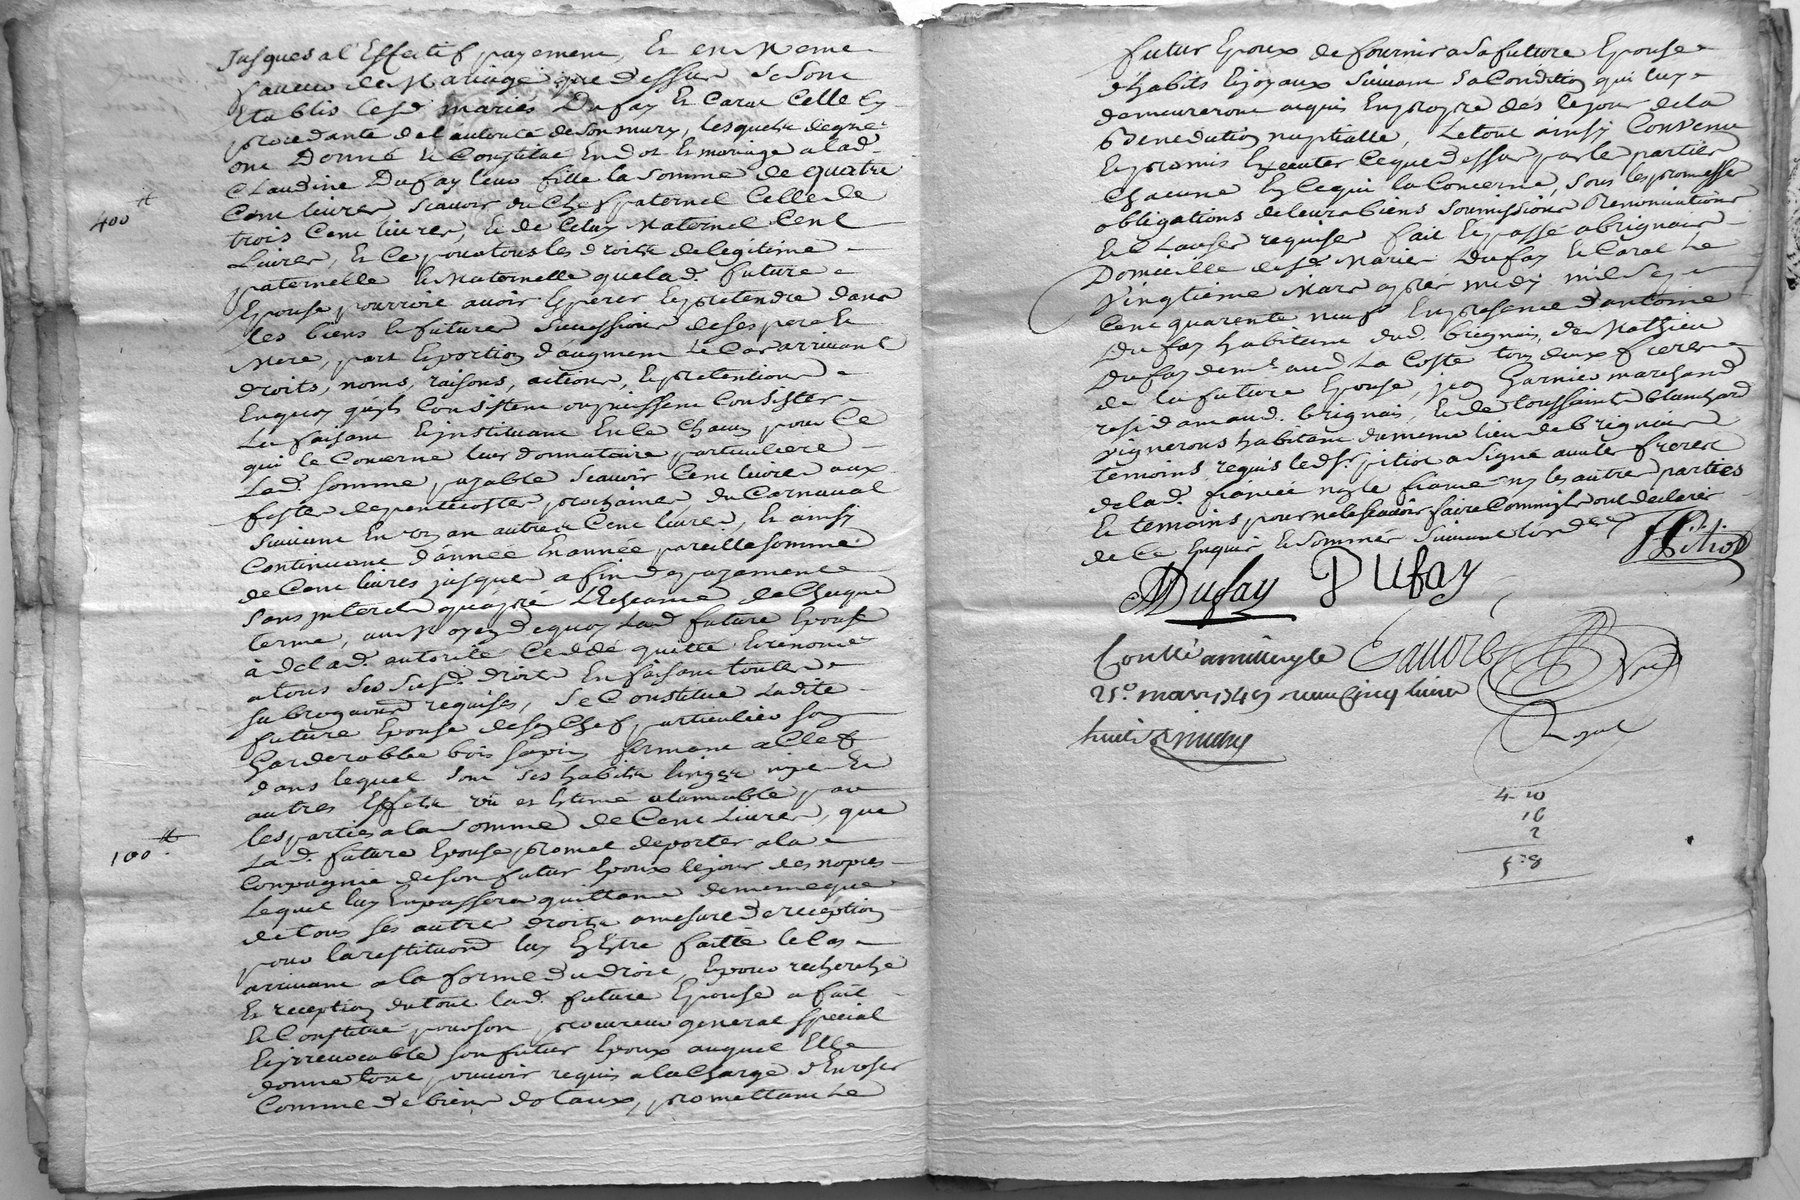 Jusques a l'Effectif payement, Et en Meme
faveur de Mariage que dessus se sont
Etablis lesd. mariés Dufay Et Carat Celle Cy
procedante de l'autorité de son mary, lesquels de gré
ont Donné Et Constitué En dot Et mariage a lad.
Claudine Dufay leur fille la somme de quatre
400tt
Cent livres scavoir du Chef paternel Celle de
trois Cent livres, Et de Celuy Maternel Cent
Livres, Et Ce pour tous les droits de legitime
paternelle Et Maternelle que lad. future
Epouse pourroit avoir Esperer Et pretendre dans
les biens Et futures successions de ses pere Et
Mere, part Et portion d'augment Le Cas arrivant
droits, noms, raisons, actions, Et pretentions
En quoy qu'ils Consistent ou puissent Consister
La faisant Et instituant En Ce Chacun pour Ce
qui le Concerne leur donnataire particuliere
Lad. somme payable scavoir Cent livres aux
festes de pentecoste prochaines du Carnaval
suivant En un an autres Cent livres, Et ainsy
Continuant d'année En année pareille somme
de Cent livres jusques a fin de payement
sans interets qu'aprés L'Echeance de Chaque
terme, au Moyen de quoy Lad. future Epouse
à de lad. autorité Cedé quitté Et renoncé
a tous ses susd. droits En faisant toutes
subrogations requises, Se Constitue Ladite
future Epouse de son Chef particulier son
Garderobbe bois sapin fermant a Clef
dans lequel sont ses habits linges nipes Et
autres Effets vû et Estimé a l'amiable par
les parties a la somme de Cent Livres, que
100tt
La d. future Epouse promet de porter a la
Compagnie de son futur Epoux le jour des nopces
Lequel luy En passera quittance de meme que
de tous ses autres droits a mesure de reception
pour la restitution luy En Estre faitte le Cas
arrivant a la forme du droit, Et pour recherche
Et reception du tout lad. future Epouse a fait
Et Constitué pour son procureur general special
Et irrevocable son futur Epoux auquel Elle
donne tout pouvoir requis a la Charge d'En user
Comme de biens dotaux, promettant Le
futur Epoux de fournir a sa future Epouse
d'habits Et joyaux suivant sa Condition qui luy
demeureront acquis En propre des le jour de la
Benediction nuptialle, Le tout ainsy Convenu
Et promis Executer Ce que dessus par le parties
Chacune En Ce qui la Concerne, sous les promesses
obligations de leurs biens soumissions Renonciations
Et Clauses requises fait Et passé a brignais
Domicille desd. Mariés Dufay Et Carat Le
vingtième Mars aprés midy mil sept
Cent quarente neuf En presence d'antoine
Dufay habitant dud. brignais, de Mathieu
Dufay demt. aud. La Coste tous deux freres
de la future Epouse, jean Garnier marchand
residant aud. brignais, Et de toussaint blanchard
vigneron habitant du meme lieu de brignais
temoins requis led. sr. pitiot a signé avec les freres
de lad. fiancée non le fiancé ny les autres parties
Et temoins pour ne le scavoir faire Comm'ils ont declaré
de Ce Enquis Et Sommés suivant l'ord.
Pitiot
MDufay DUfay
Conllé a millery le
25e. mars 1749 reçu Cinq livres
huit s
4-10
16
2
5:8